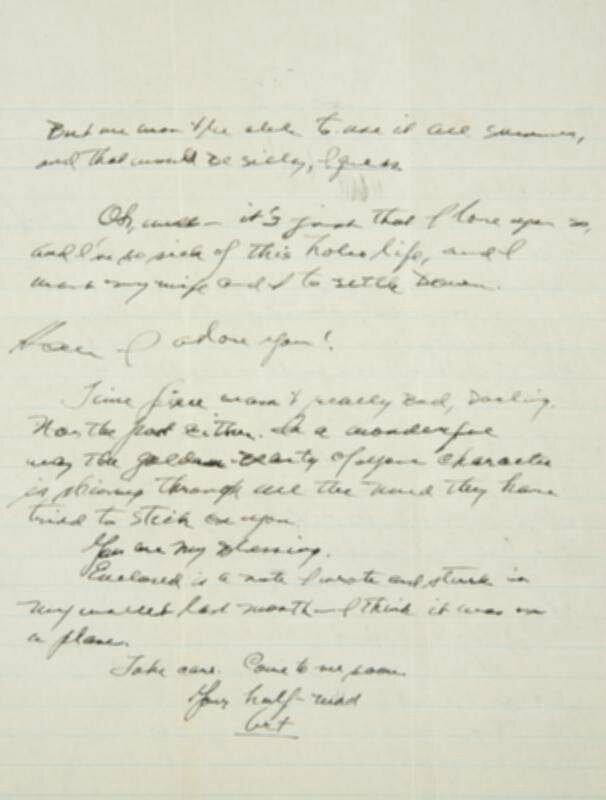 But we won't be able to use it all summer,
and that would be silly, I guess
Oh, well – it's just that I love you so,
and I'm so sick of this hotel life, and I
want my wife and I to settle down.
I adore you!
Time piece wasn't really bad, Darling.
Nor the post either. In a wonderful
way the golden beauty of your character
is shining through all the mud they have
tried to stick on you.
You are my blessing.
Enclosed is a note I wrote and stuck in
my wallet last month – I think it was on
a plane.
Take care. Come to me soon
Your half-mad